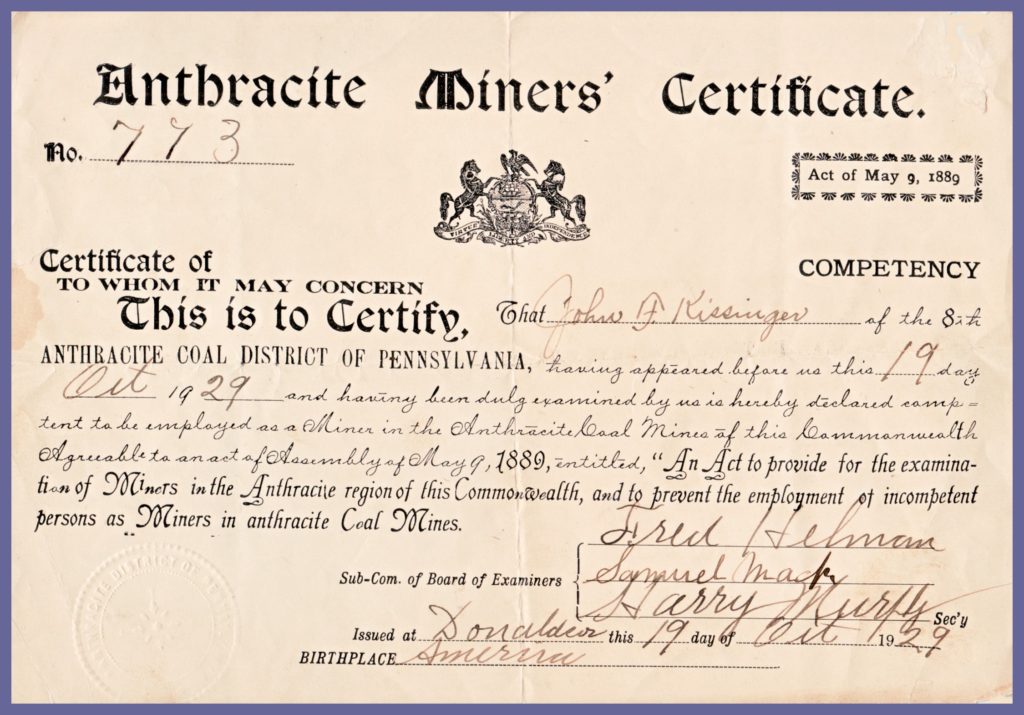 Anthracite Miners' Certificate.
No. 773
Act of May 9, 1889
VIRTUE LIBERTY AND INDEPENDENCE
Certificate of COMPETENCY
TO WHOM IT MAY CONCERN
This is to Certify, That John F Kissinger of the 8th
ANTHRACITE COAL DISTRICT OF PENNSYLVANIA, having appeared before us this 19 day
Oct 1929 and having been duly examined by us is hereby declared comp=
tent to be employed as a Miner in the Anthracite Coal Mines of this Commonwealth
Agreeable to an act of Assembly of May 9, 1889, entitled, "An Act to provide for the examina-
tion of Miners in the Anthracite region of this Commonwealth, and to prevent the employment of incompetent
persons as Miners in anthracite Coal Mines.
Fred Helman
Sub-Com. of Board of Examiners Samuel Mack
Harry Murphy Sec'y
Issued at Donaldson this 19 day of Oct 1929
BIRTHPLACE America
ANTHRACITE DISTRICT OF